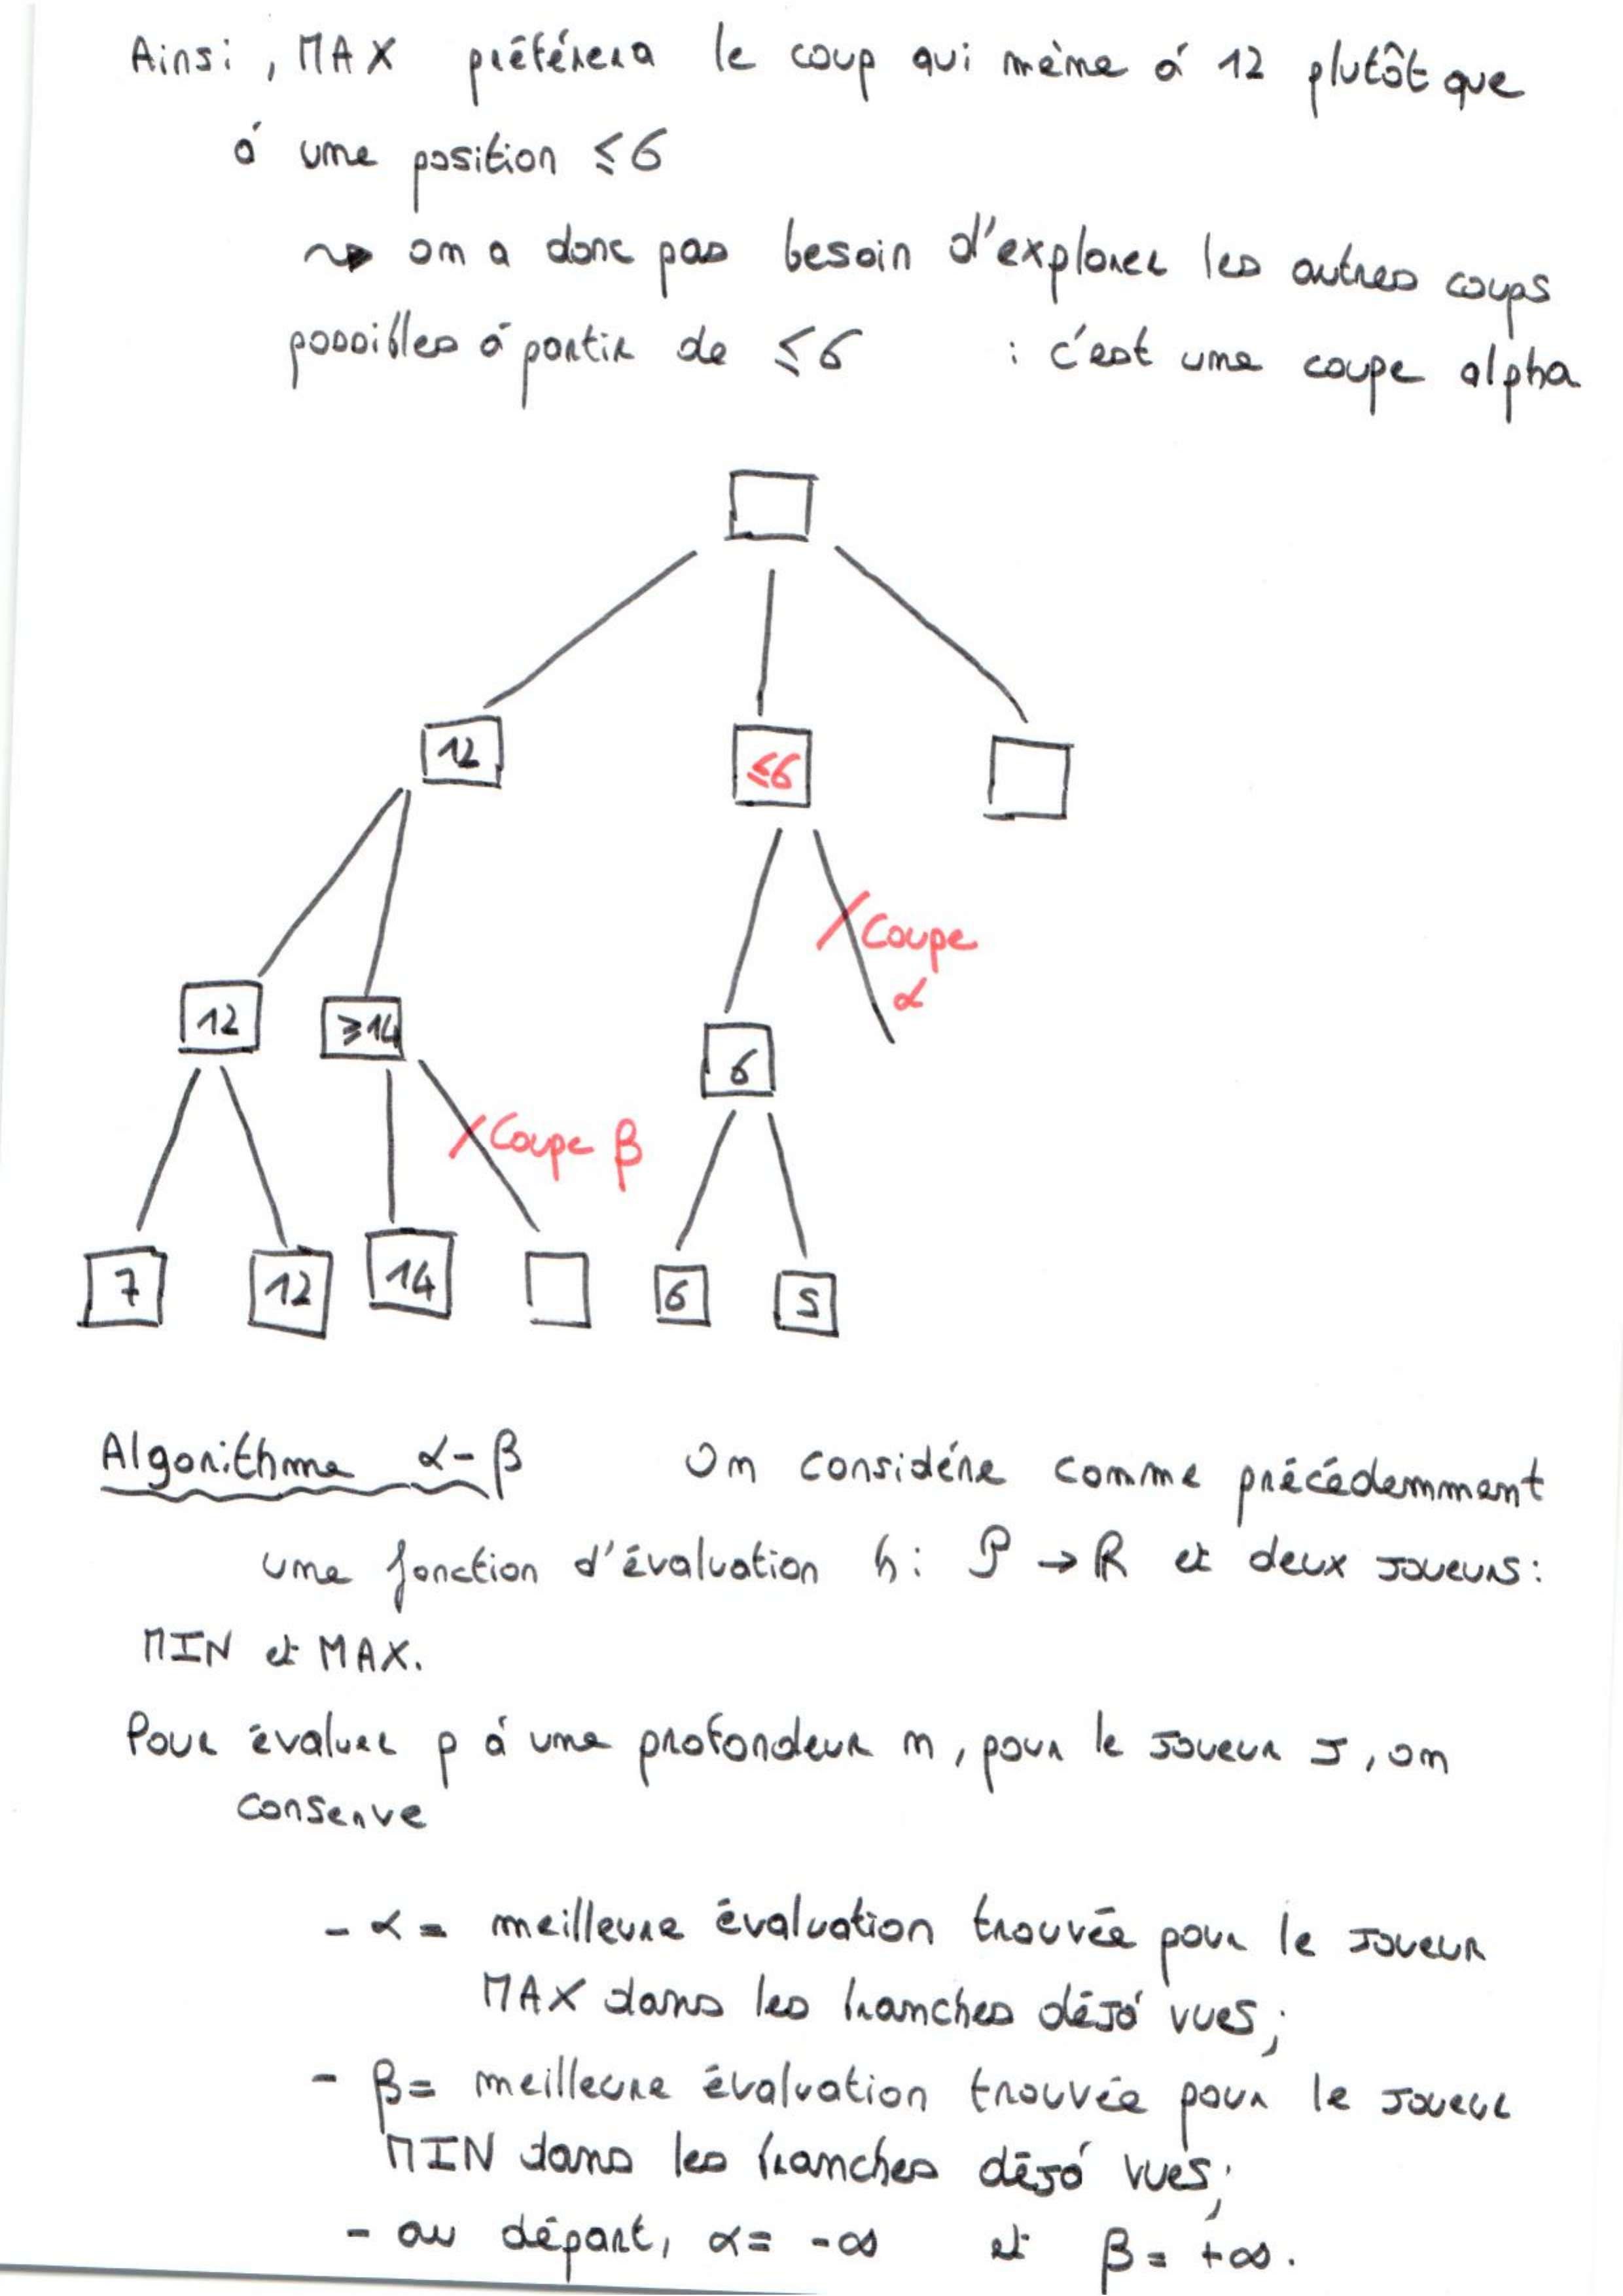 Ainsi, MAX préférera le coup qui mène à 12 plutôt que
à une position ≤6
⇝ on a donc pas besoin d'explorer les autres coups
possibles à partir de ≤6 : c'est une coupe alpha
12
≤6
Coupe
α
12
≥14
6
Coupe β
7
12
14
6
5
Algorithme α-β On considère comme précédemment
une fonction d'évaluation h: P → R et deux joueurs:
MIN et MAX.
Pour évaluer p à une profondeur n, pour le joueur J, on
conserve
- α = meilleure évaluation trouvée pour le joueur
MAX dans les branches déjà vues;
- β = meilleure évaluation trouvée pour le joueur
MIN dans les branches déjà vues;
- au départ, α = -∞ et β = +∞.